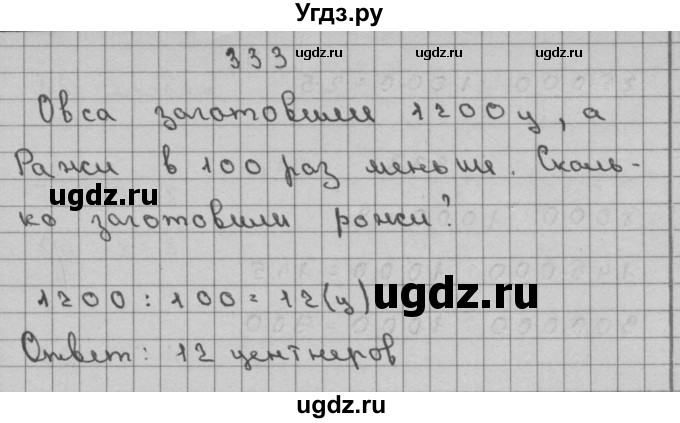 Угдз.ру
333 ugdz.ru ugdz.ru ugdz.ru
Овса заготовили 1200ц, а
Ражи в 100 раз меньше. Сколь-
ugdz.ru ugdz.ru
ко заготовили ржи?
1200 : 100 = 12(ц) ugdz.ru
Ответ: 12 центнеров
ugdz.ru